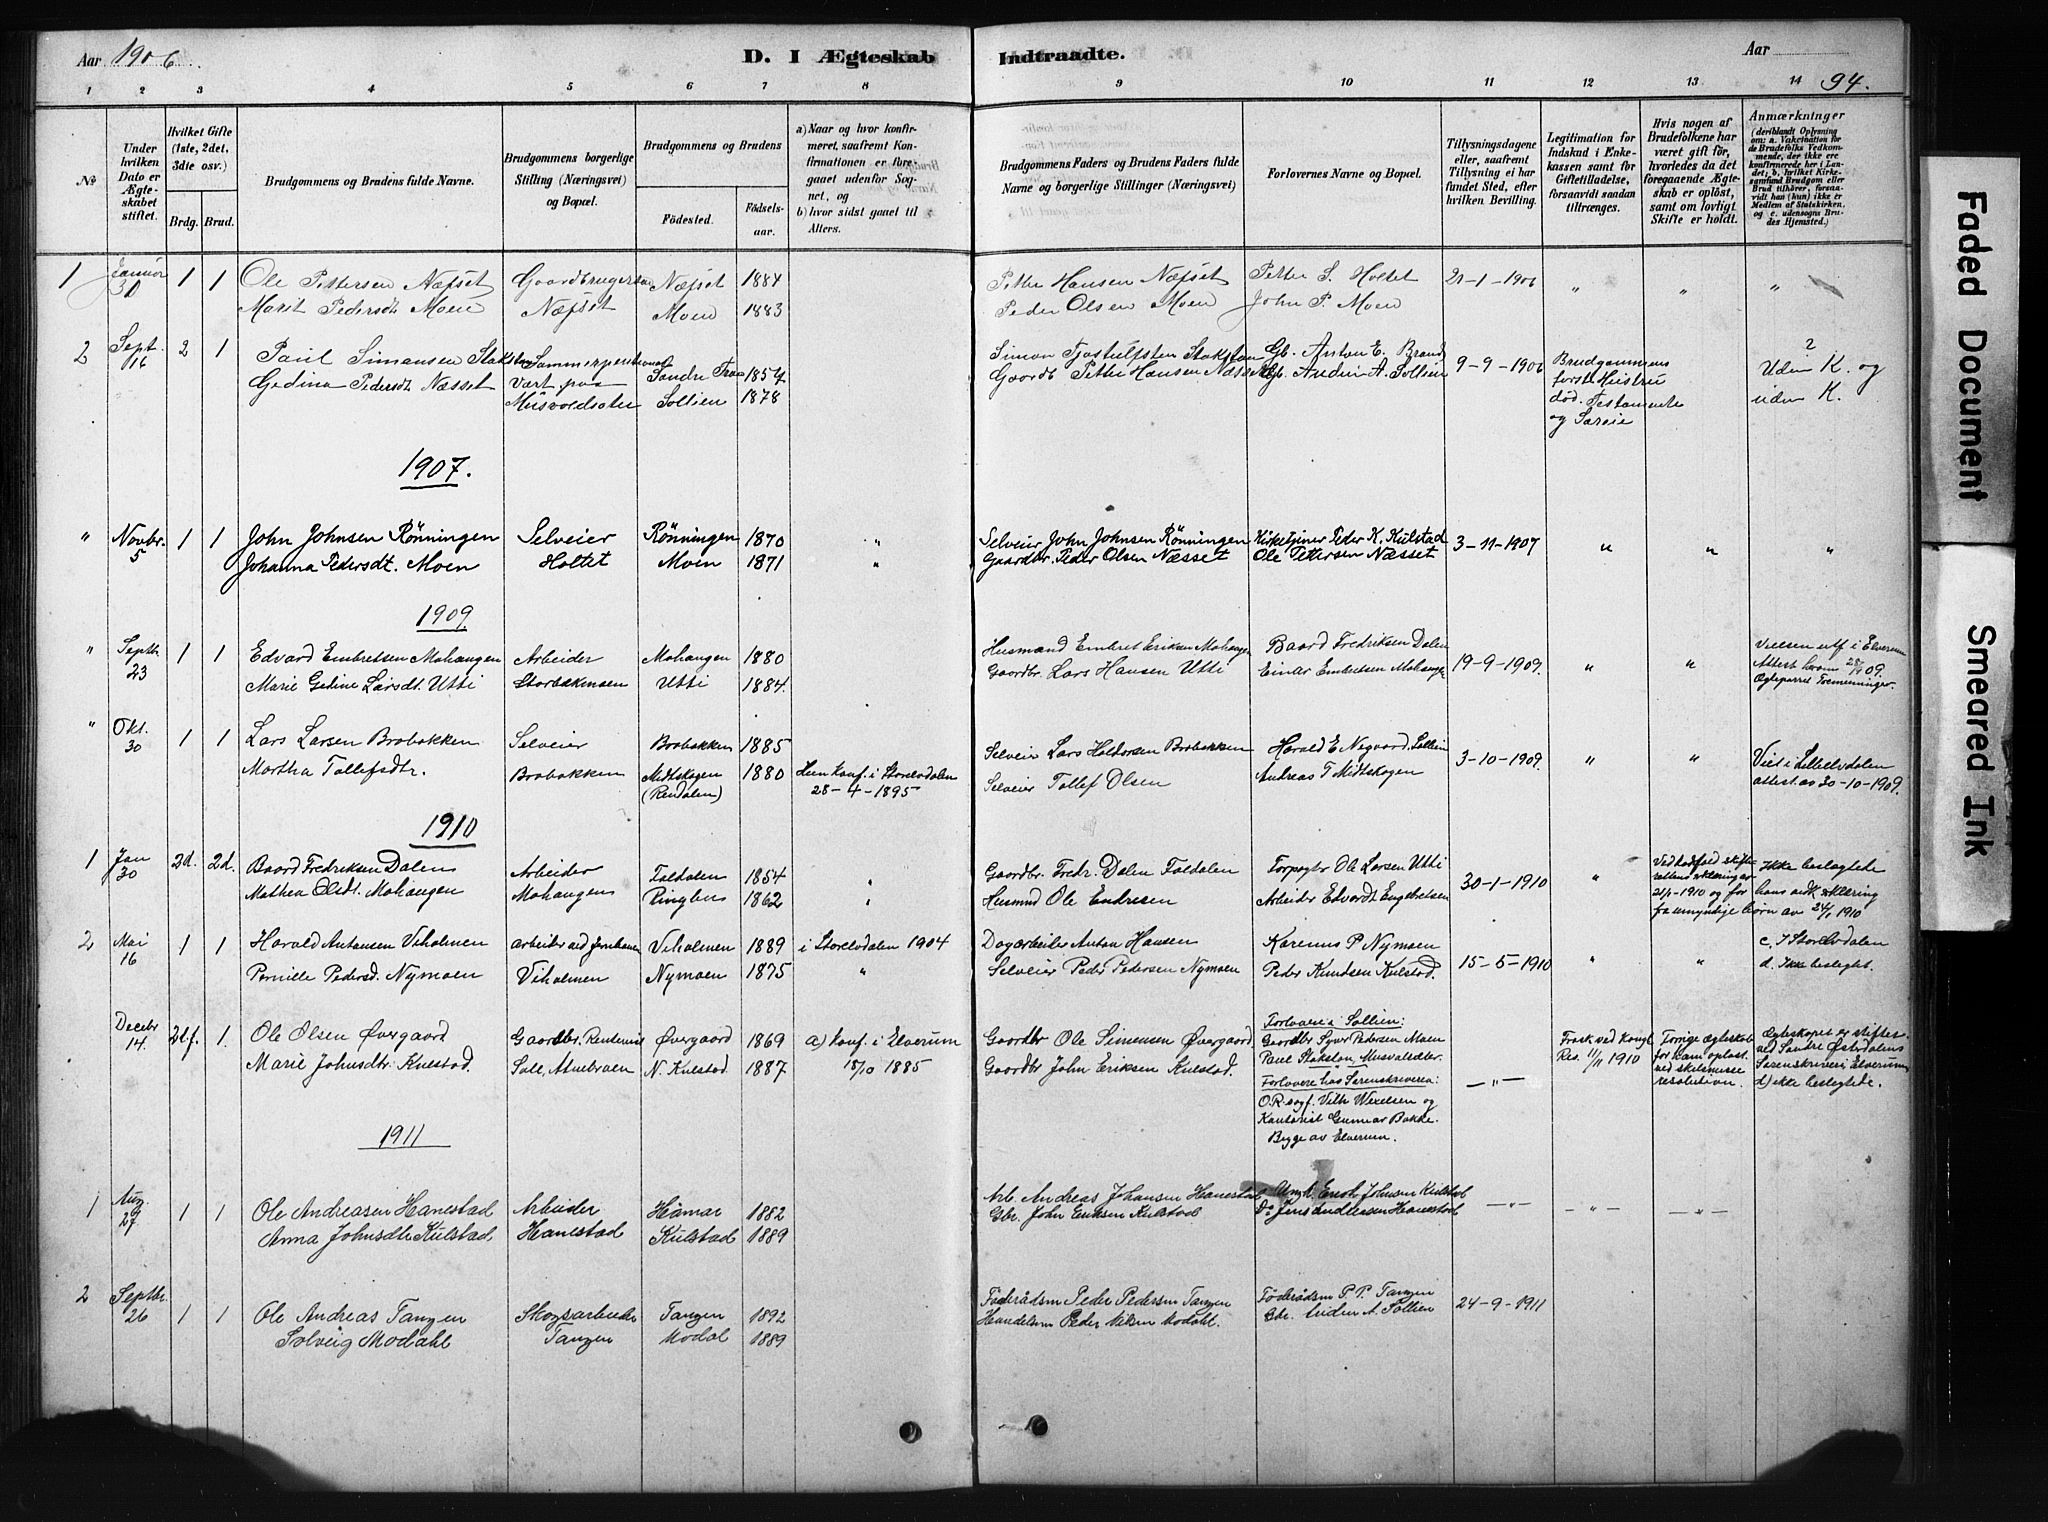 Aar 1906.
D. I Ægteskab Indtraadte.
Aar
94.
1 2 3 4 5 6 7 8 9 10 11 12 13 14
№
Under hvilken Dato er Ægteskabet stiftet.
Hvilket Gifte (1ste, 2det, 3die osv.)
Brdg. Brud.
Brudgommens og Brudens fulde Navne.
Brudgommens borgerlige Stilling (Næringsvei) og Bopæl.
Brudgommens og Brudens
Fødested.
Fødselsaar.
a) Naar og hvor konfirmeret, saafremt Konfirmationen er foregaaet udenfor Sognet, og
b) hvor sidst gaaet til Alters.
Brudgommens Faders og Brudens Faders fulde Navne og borgerlige Stillinger (Næringsvei)
Forlovernes Navne og Bopæl.
Tillysningsdagene eller, saafremt Tillysning ei har fundet Sted, efter hvilken Bevilling.
Legitimation for Indskud i Enkekassen samt for Giftetilladelse, forsaavidt saadan tiltrænges.
Hvis nogen af Brudefolkene har været gift før, hvorledes da det foregaaende Ægteskab er opløst, samt om lovligt Skifte er holdt.
Anmærkninger
(deriblandt Oplysning om: a. Vakcination for de Brudefolks Vedkommende, der ikke ere konfirmerede her i Landet; b. hvilket Kirkesamfund Brudgom eller Brud tilhører, forsaavidt han (hun) ikke er Medlem af Statskirken, og c. udensogns Brudes Hjemsted.)
1 Januar 30 1 1 Ole Pettersen Næfset Gaardbruger Næfset 1884 Petter Hansen Næfset Petter S. Holtet 21-1-1906 " " "
Marit Pedersdt Moen Næfset Moen 1883 Peder Olsen Moen John P. Moen
2 Sept. 16 2 1 Paul Simansen Stakston 1854 Simon Gb. Anton E. Brand 9-9-1906 Brudgommens 2
Gedina Pedersdt Næsset vært paa Sollien 1878 Gaardb Petter Hansen Næsset Gb. Anden A. Sollien første Hustru Uden K. og
Misvoldsæter død. Testamente uden K.
og
1907.
" Novbr. 5 1 1 John Johnsen Rönningen Selveier Rönningen 1870 " Selveier John Johnsen Rönningen Kirketjener Peder K. Kulstad 3-11-1907 " " "
Johanna Pedersdt. Moen Holtet Moen 1871 " Gaardbr. Peder Olsen Næsset Ole Pettersen Næsset
1909
" Septbr. 23 1 1 Edvard Embretsen Mohangen Arbeider Mohangen 1880 Husmand Embret Eriksen Mohangen Baard Fredriksen Dalen 19-9-1909. " " Vielsen utf i Elverum
Marie Gedine Larsdt. Utti Storbækmoen Utti 1884. Gaardbr. Lars Hansen Utti Einar Embretsen Mohangen Attest herom 28/9 09.
Ægteparret Tremenninger.
" Okt. 30 1 1 Lars Larsen Brobakken Selveier Brobakken 1885 Selveier Lars Haldorsen Brobakken Harald E Negaard, Sollien 3-10-1909. " " Viet i Lilleelvdalen
Martha Tollefsdtr. Brobakken Midtskogen (Rendalen) 1880 Hun konf. i Storelvdalen 28-4-1895 Selveier Tollef Olsen Andreas T Midtskogen attest av 30-10-1909.
1910
1 Jan 30 2d. 2d. Baard Fredriksen Dalen Arbeider Foldalen 1854 " Gaardbr. Fredr. Dalen Foldalen Forpagtr Ole Larsen Utti 30-1-1910 " Ikke beslegtede
Mathea Olsdt. Mohangen Mohangen Ringbu 1862 " Husmnd Ole Endresen Arbeider Edvardt Engebretsen
fra umyndige børn av 24/1 1910
2 Mai 16 1 1 Harald Antonsen Viholmen arbeider ved Jernbanen Viholmen 1889 i Storelvdalen 1904 Dagarbeider Anton Hansen Karenus P Nymoen 15-5-1910 " " c. I Storelvdalen
Pernille Pedersd. Nymoen Viholmen Nymoen 1875 " Selveier Peder Pedersen Nymoen Peder Knudsen Kulstad. d. Ikke beslegtet.
Decebr 14. 2d.f. 1. Ole Olsen Øvergaard Gaardbr. Øvergaard 1869 a) Konf. i Elverum Gaardbr Ole Simensen Øvergaard Forlovere i Sollien: Forrige ægteskab Ægteskapet er stiftet
Marie Johnsdtr. Kulstad. N. Kulstad 1887 18/10 1885 Gaardbr John Eriksen Kulstad. Gaardbr Syver Pedersen Moen Res. 11/11 1910 for ham opløst ved Søndre Østerdalens
Paul Stakston, Musvoldsæter. ved skilsmisse Sorenskriveri, Elverum
Forlovere hos Sorenskriveren: — " — resolution. d) ikke beslegtede.
O.R.sagf. Vilh Wexelsen og
Kontorist Gunnar Bakke.
Begge av Elverum.
1911
1 Aug 27 1 1 Ole Andreasen Hanestad Arbeider Hamar 1882 Arb. Andreas Johansen Hanestad Johnsen Kulstad — " — — " — — " —
Anna Johnsdtr Kulstad Hanestad Kulstad 1889 Gbr. John Eriksen Kulstad Do Jens Andreasen Hanestad
2 Septbr. 26 1 1 Ole Andreas Tangen Skogsarbeider Tangen 1892 Føderådsm Peder Pedersen Tangen Føderådsm P. P. Tangen 24-9-1911
Solveig Modahl Tangen Modal 1889 Handelsm Peder Modahl. Gbr. A. Sollien
Faded Document
Smeared Ink